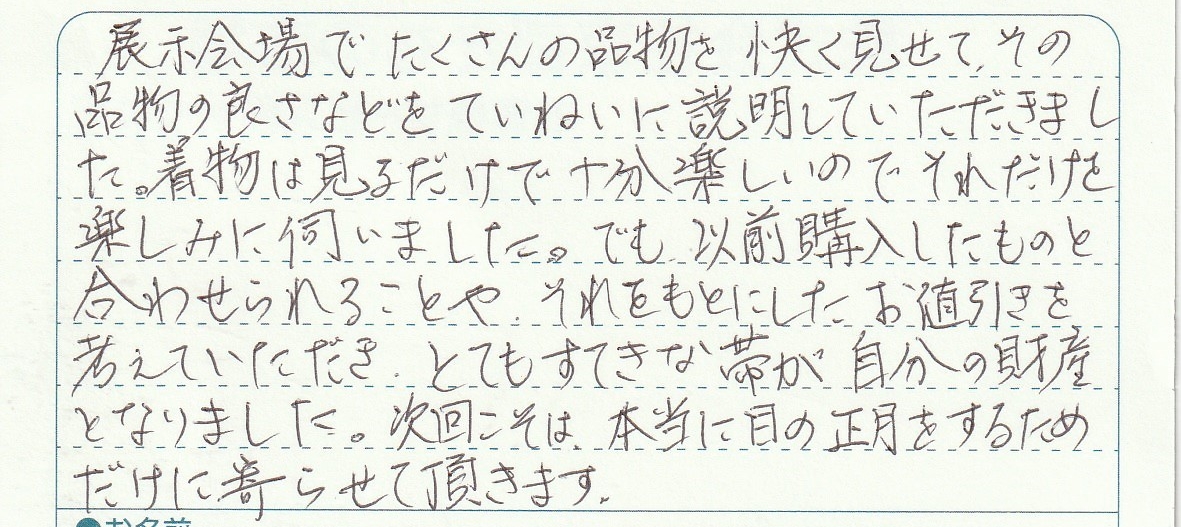 展示会場でたくさんの品物を快く見せて、その
品物の良さなどをていねいに説明していただきまし
た。着物は見るだけで十分楽しいのでそれだけを
楽しみに伺いました。でも以前購入したものと
合わせられることや、それをもとにしたお値引きを
考えていただき、とてもすてきな帯が自分の財産
となりました。次回こそは、本当に目の正月をするため
だけに寄らせて頂きます。
●お名前